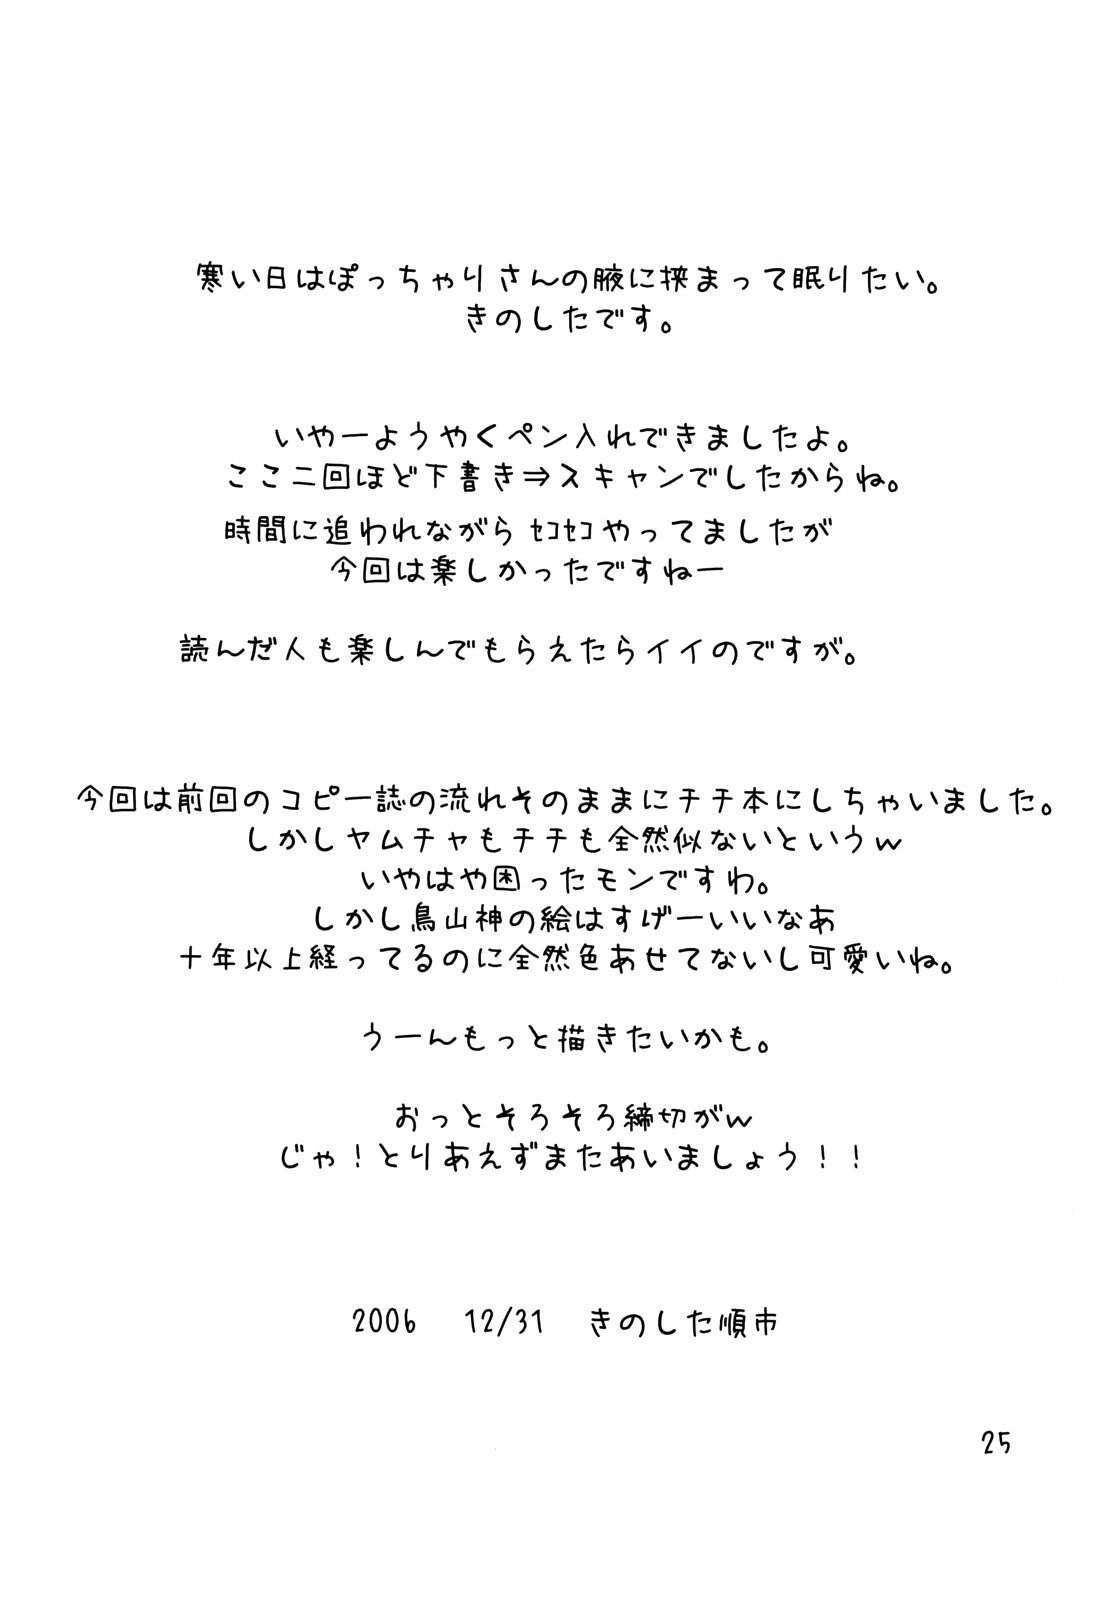 寒い日はぽっちゃりさんの腋に挟まって眠りたい。
きのしたです。
いやーようやくペン入れできましたよ。
ここ二回ほど下書き⇒スキャンでしたからね。
時間に追われながらｾｺｾｺやってましたが
今回は楽しかったですねー
読んだ人も楽しんでもらえたらイイのですが。
今回は前回のコピー誌の流れそのままにチチ本にしちゃいました。
しかしヤムチャもチチも全然似ないというｗ
いやはや困ったモンですわ。
しかし鳥山神の絵はすげーいいなあ
十年以上経ってるのに全然色あせてないし可愛いね。
うーんもっと描きたいかも。
おっとそろそろ締切がｗ
じゃ！とりあえずまたあいましょう！！
2006 12/31 きのした順市
25